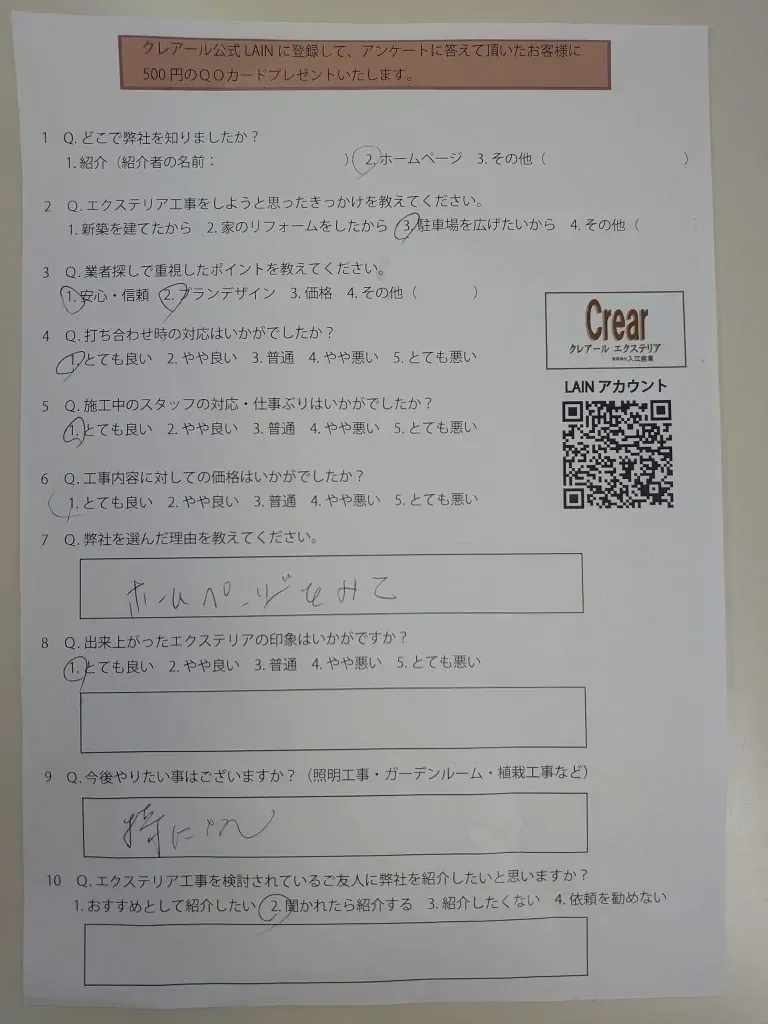 クレアール公式 LAIN に登録して、アンケートに答えて頂いたお客様に
500 円のＱＯカードプレゼントいたします。
1 Q. どこで弊社を知りましたか？
1. 紹介（紹介者の名前： ） 2. ホームページ 3. その他（ ）
2 Q. エクステリア工事をしようと思ったきっかけを教えてください。
1. 新築を建てたから 2. 家のリフォームをしたから 3. 駐車場を広げたいから 4. その他（
3 Q. 業者探しで重視したポイントを教えてください。
1. 安心・信頼 2. プランデザイン 3. 価格 4. その他（ ）
4 Q. 打ち合わせ時の対応はいかがでしたか？
1. とても良い 2. やや良い 3. 普通 4. やや悪い 5. とても悪い
Crear
クレアール エクステリア
有限会社入江産業
LAIN アカウント
5 Q. 施工中のスタッフの対応・仕事ぶりはいかがでしたか？
1. とても良い 2. やや良い 3. 普通 4. やや悪い 5. とても悪い
6 Q. 工事内容に対しての価格はいかがでしたか？
1. とても良い 2. やや良い 3. 普通 4. やや悪い 5. とても悪い
7 Q. 弊社を選んだ理由を教えてください。
ホームページをみて
8 Q. 出来上がったエクステリアの印象はいかがですか？
1. とても良い 2. やや良い 3. 普通 4. やや悪い 5. とても悪い
9 Q. 今後やりたい事はございますか？（照明工事・ガーデンルーム・植栽工事など）
特に
10 Q. エクステリア工事を検討されているご友人に弊社を紹介したいと思いますか？
1. おすすめとして紹介したい 2. 聞かれたら紹介する 3. 紹介したくない 4. 依頼を勧めない